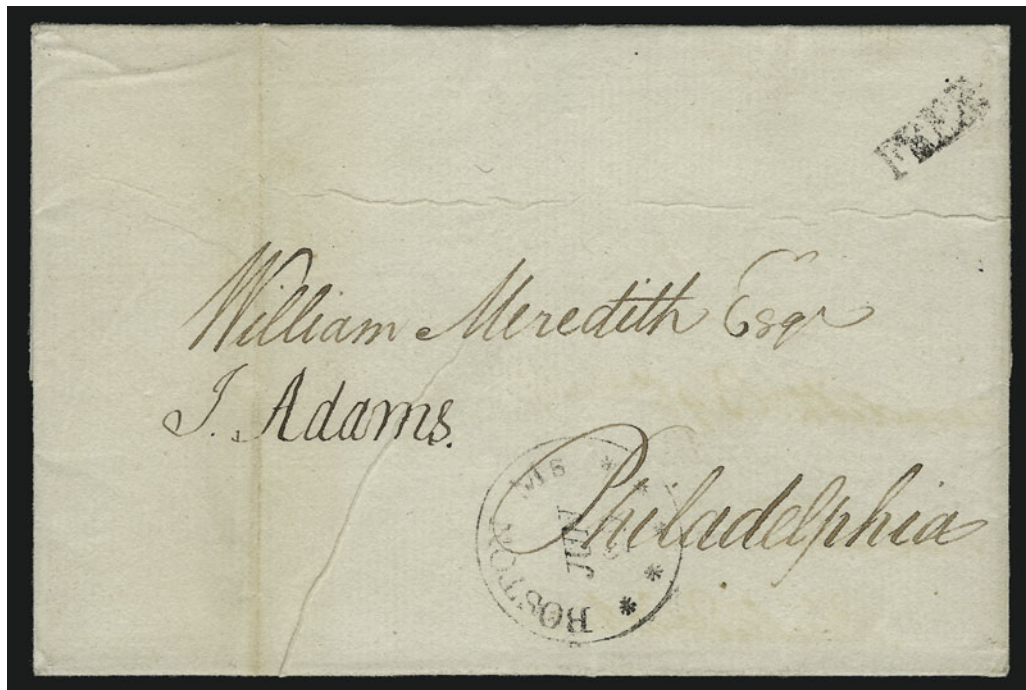 FREE
William Meredith Esqr
J. Adams.
Philadelphia
BOSTON MS
JUN